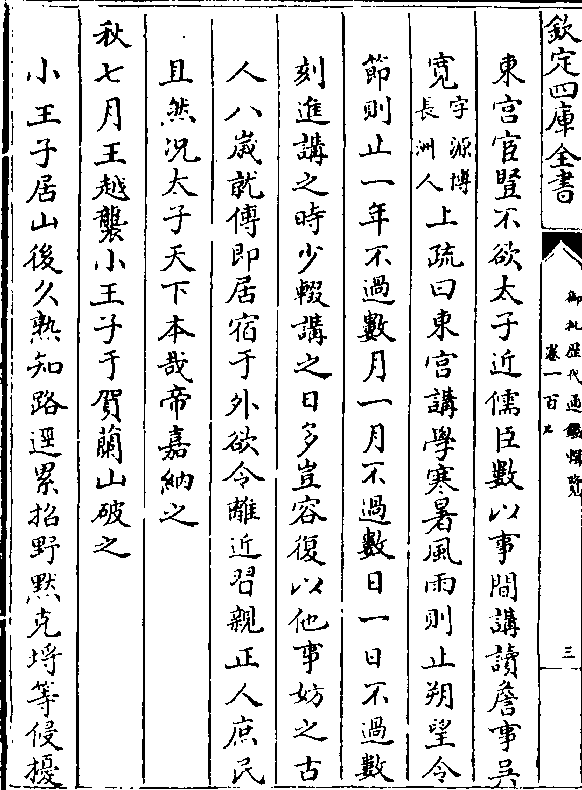 欽定四庫全書
御批歴代通鑑輯覽
卷一百
三
東宮官豎不欲太子近儒臣數以事間講讀詹事吴
寛字源博長洲人上疏曰東宮講學寒暑風雨則止朔望令
節則止一年不過數月一月不過數日一日不過數
刻進講之時少輟講之日多豈容復以他事妨之古
人八嵗就傅即居宿于外欲令離近習親正人庶民
且然况太子天下本哉帝嘉納之
秋七月王越襲小王子于賀蘭山破之
小王子居山後久熟知路逕累招野黙克埒等侵擾